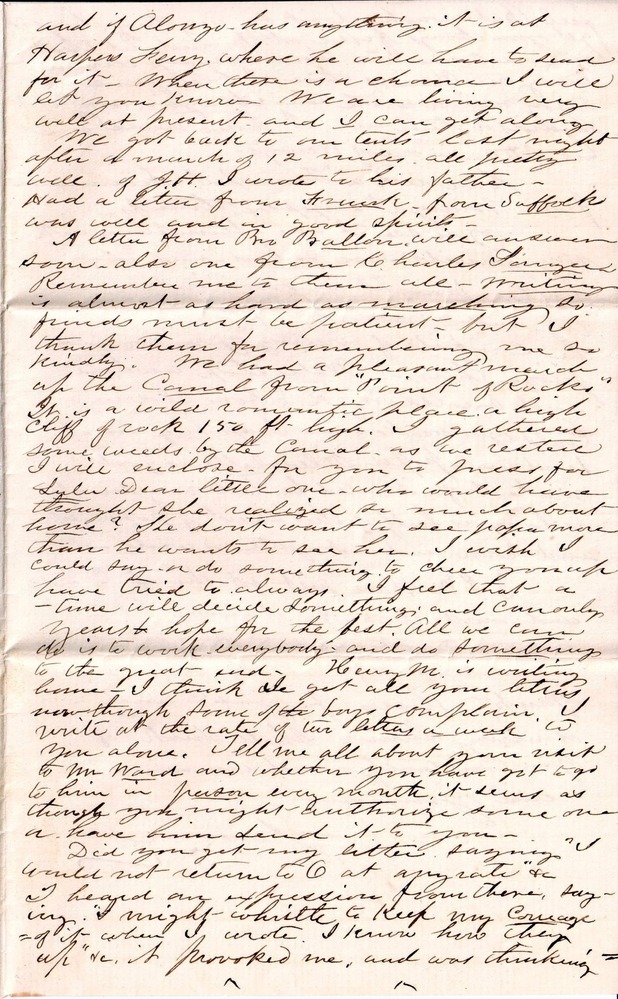 and if Alonzo has anything it is at
Harpers Ferry, where he will have to send
for it - When there is a chance I will
let you know We are living very
well at present and I can get along
We got back to our tents last night
after a march of 12 miles all pretty
well. of J.H. I wrote to his father -
Had a letter from Frank - from Suffolk
was well and in good spirits -
A letter from Bro Ballou. will answer
soon - also one from Charles
Remember me to them all - Writing
is almost as hard as marching so
friends must be patient - but I
thank them for remembering me so
kindly. We had a pleasant march
up the Canal from "Point of Rocks"
It is a wild romantic place a high
cliff of rock 150 ft high. I gathered
some weeds by the Canal - as we rested
I will enclose - for you to press for
Lulu Dear little one - who would have
thought she realized so much about
home? She don't want to see papa more
than he wants to see her. I wish I
could say or do something to cheer you up
have tried to always. I feel that a
- time will decide something and can only
& hope for the best. All we can
do is to work everybody - and do something
to the great end - Henry M. is writing
home - I think we get all your letters
now though some of the boys complain. I
write at the rate of two letters a week to
you alone. Tell me all about your visit
to Mr Ward and whether you have got to go
to him in person every month, it seems as
though you might authorize some one
or have him send it to you -
Did you get my letter saying "I
would not return to O at any rate" &c
I heard an expression from there, say-
ing "I might whistle to keep my Courage
=of it when I wrote I know how they
up" &c, it provoked me, and was thinking=